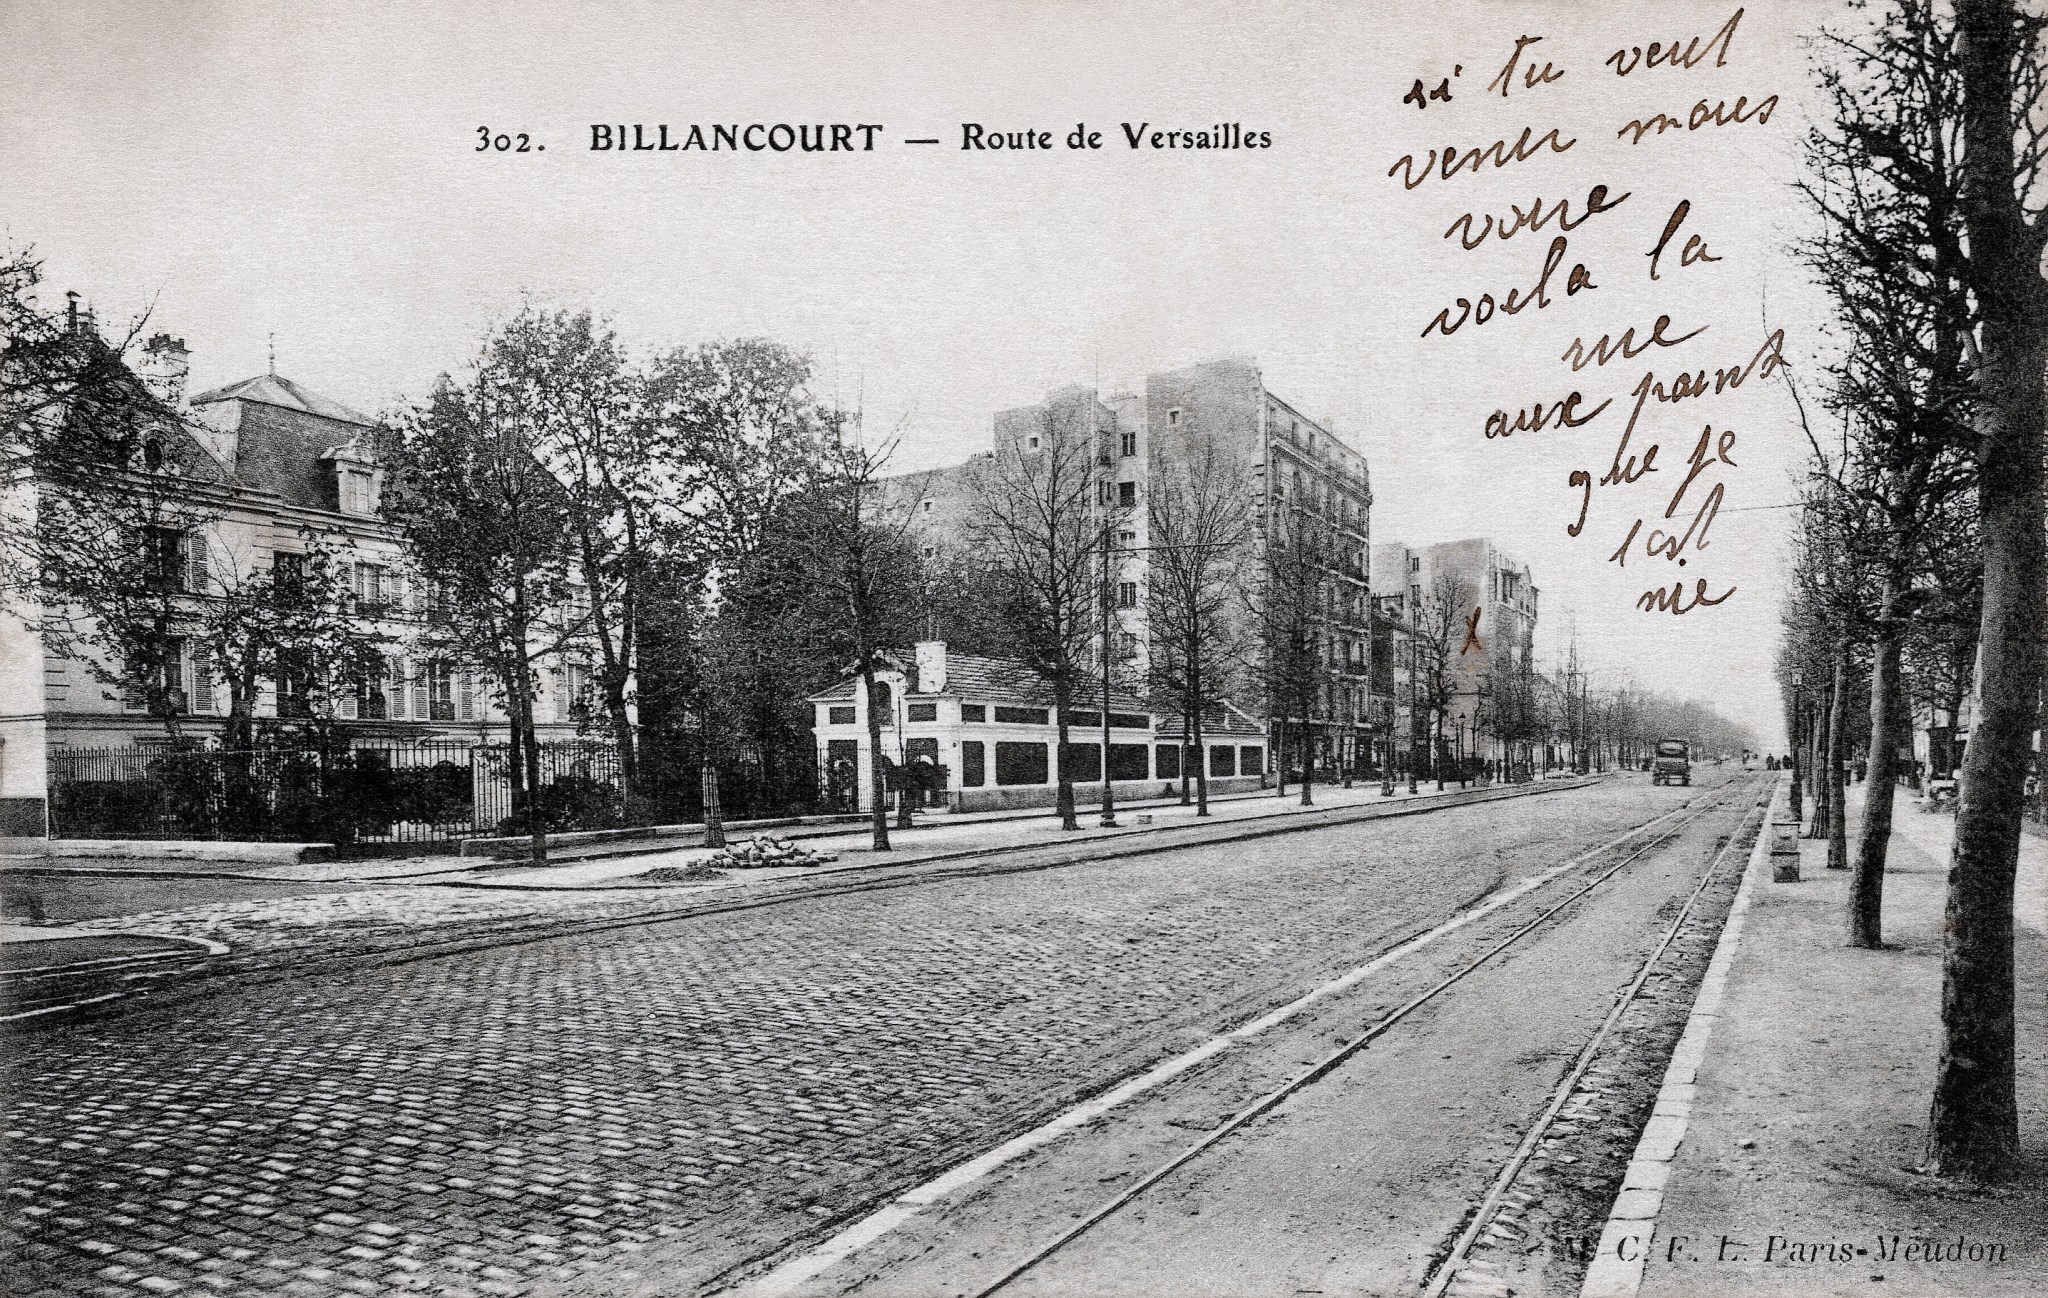 302. BILLANCOURT — Route de Versailles
si tu veul
venir nous
voire
voila la
rue
aux point
que je
lest
mie
X
M. C. F. L. Paris-Meudon